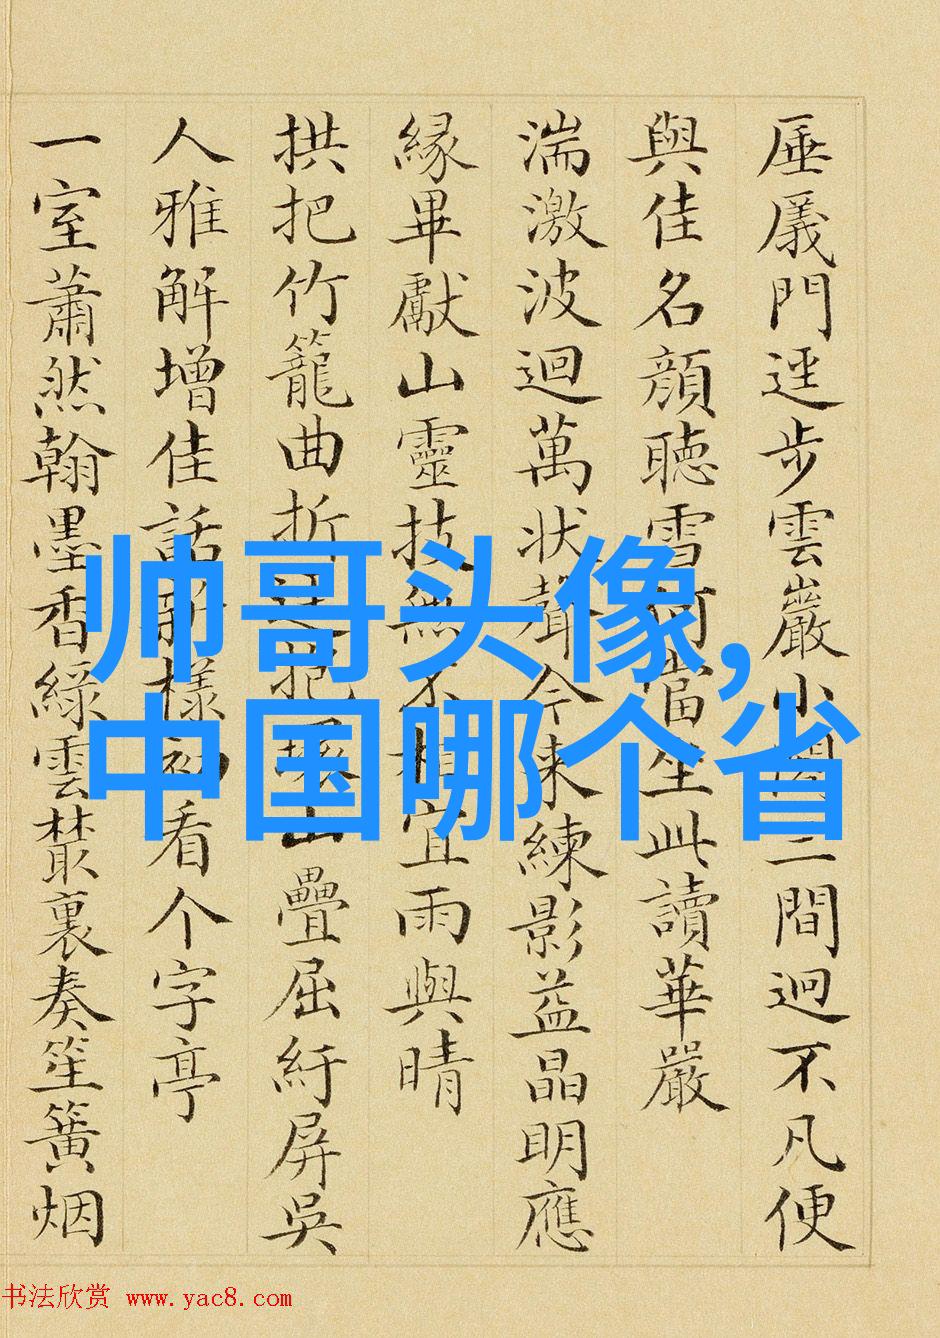 厜㕒門逕步雲巖小閣三間迥不凡便
與佳名顏聽雪何當坐此讀華嚴
湍激波迴萬狀聲今來練影益晶明應
緣畢獻山靈技無不相宜雨與晴
拱把竹籠曲折
山疊屈紆屏吳
人雅解增佳話
樣初看个字亭
一室蕭然翰墨香綠雲藂裏奏笙簧烟
帅哥头像,
中国哪个省
书法欣赏 www.yac8.com